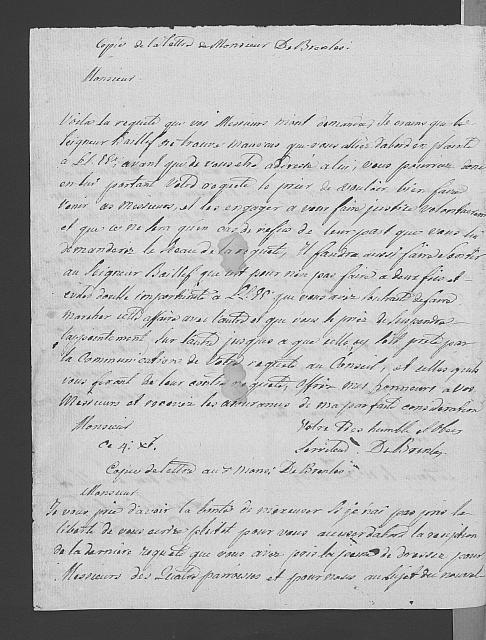 Copie de la lettre de Monsieur DeBrenles.
Monsieur.
Voila la requete que vos Messieurs m'ont demandée, Je crains que le
Seigneur Baillif ne trouve mauvais que vous alliez dabord en plainte
à LL.EE., avant que de vous etre adressé a lui, vous pourrez donc
en lui portant votre requete le prier de vouloir bien faire
venir ces Messieurs, et les engager a vous faire justice volontairement
et que ce ne sera qu'en cas de refus de leur part que vous lui
demanderez le sceau de la requete, Il faudra aussi faire sentir
au Seigneur Baillif que c'est pour n'en pas faire a deux fois et
double importunité a LL.EE. qui vous avez souhaité de faire
marcher cette affaire avec l'autre et que vous le priez de suspendre
l'appointement sur l'autre jusques a que celle cy soit prete par
la Communication de votre requete au Conseil, et celles qu'ils
vous feront de leur contre requete, Offrez mes honneurs a vos
Messieurs et recevez les assurances de ma parfaite considération
Monsieur Votre tres humble et Obeis
Ce 4. Serviteur DeBrenles
Copie de lettre au Monsr. DeBrenles
Monsieur
Je vous prie d'avoir la bonté de m'excuser si je n'ai pas pris la
liberté de vous ecrire plutot pour vous accuser dabord la reception
de la derniere requete que vous avez pris la peine de dresser pour
Messieurs des Quatre parroisses et pour nous au sujet du nouvel